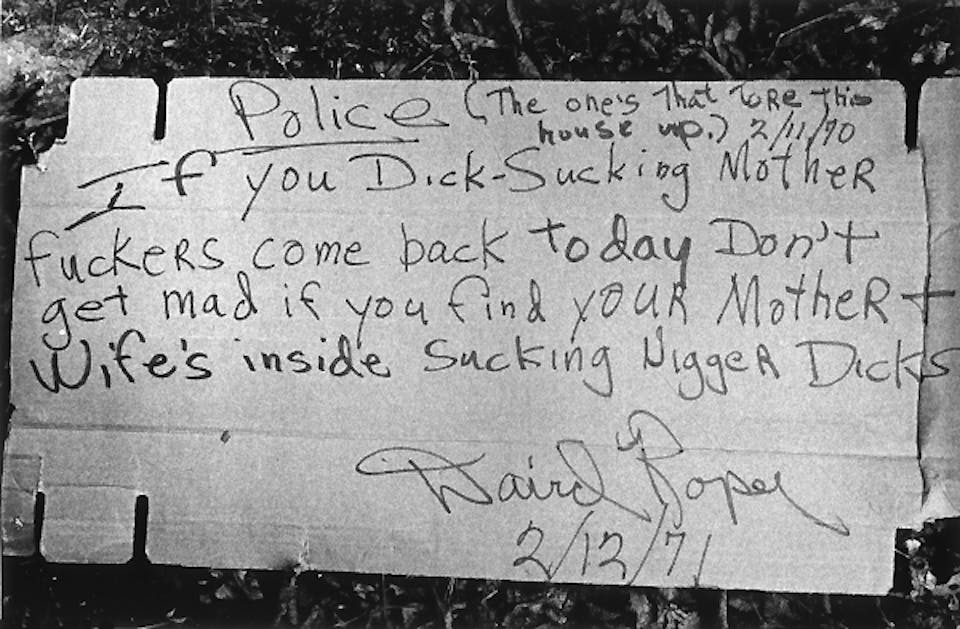 Police (The one's That tore this
house up.) 2/11/70
If you Dick-Sucking Mother
fuckers come back today Don't
get mad if you find your Mother +
Wife's inside sucking Nigger Dicks
2/12/71